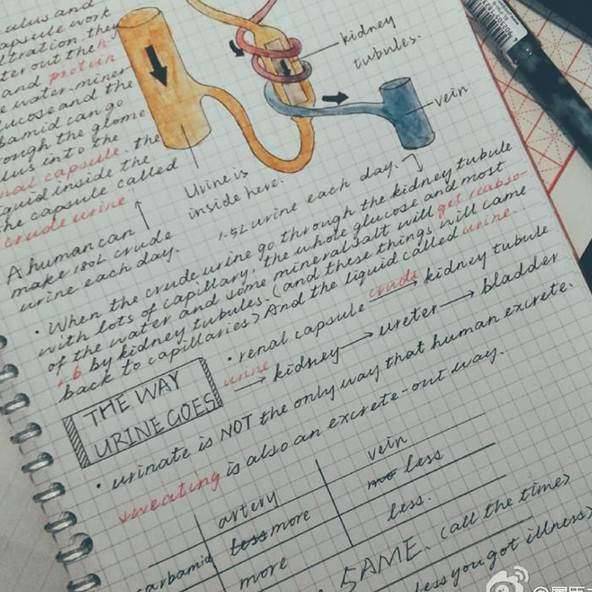 ulus and
apsule work
ltration. they
ter out the
and protein
water, miner
lucose and the
bamid can go
rough the glome
lus into the
nal capsule. the
iquid inside the
he capsule called
crude urine
kidney
tubules.
vein
Urine is
inside here.
A human can
make 180L crude
urine each day.
1.5L urine each day.
· When the crude urine go through the kidney tubule
with lots of capillary, the whole glucose and most
of the water and some mineral salt will get reabso-
r b by kidney tubules. (and these things will came
back to capillaries) And the liquid called urine.
· renal capsule crude urine → kidney tubule
→ kidney → ureter → bladder
THE WAY
URINE GOES
· urinate is NOT the only way that human excrete.
sweating is also an excrete-out way.
artery vein
carbamid less more no less
more less.
SAME. (all the time)
less you got illness)